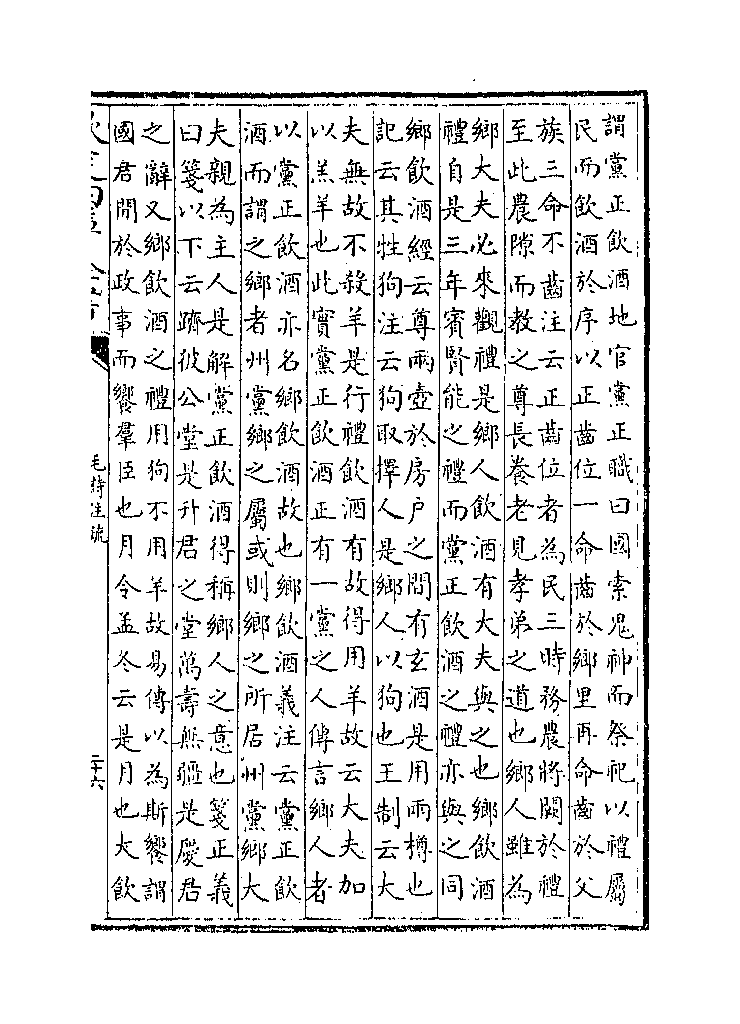 謂黨正飲酒地官黨正職曰國索鬼神而祭祀以禮屬
民而飲酒於序以正齒位一命齒於鄉里再命齒於父
族三命不齒注云正齒位者為民三時務農將闕於禮
至此農隙而教之尊長養老見孝弟之道也鄉人雖為
鄉大夫必來觀禮是鄉人飲酒有大夫與之也鄉飲酒
禮自是三年賓賢能之禮而黨正飲酒之禮亦與之同
鄉飲酒經云尊兩壺於房户之間有玄酒是用兩樽也
記云其牲狗注云狗取擇人是鄉人以狗也王制云大
夫無故不殺羊是行禮飲酒有故得用羊故云大夫加
以羔羊也此實黨正飲酒正有一黨之人傳言鄉人者
以黨正飲酒亦名鄉飲酒故也鄉飲酒義注云黨正飲
酒而謂之鄉者州黨鄉之屬或則鄉之所居州黨鄉大
夫親為主人是解黨正飲酒得稱鄉人之意也箋正義
曰箋以下云躋彼公堂是升君之堂萬壽無疆是慶君
之辭又鄉飲酒之禮用狗不用羊故易傳以為斯饗謂
國君閒於政事而饗羣臣也月令孟冬云是月也大飲
毛詩注疏
二十六